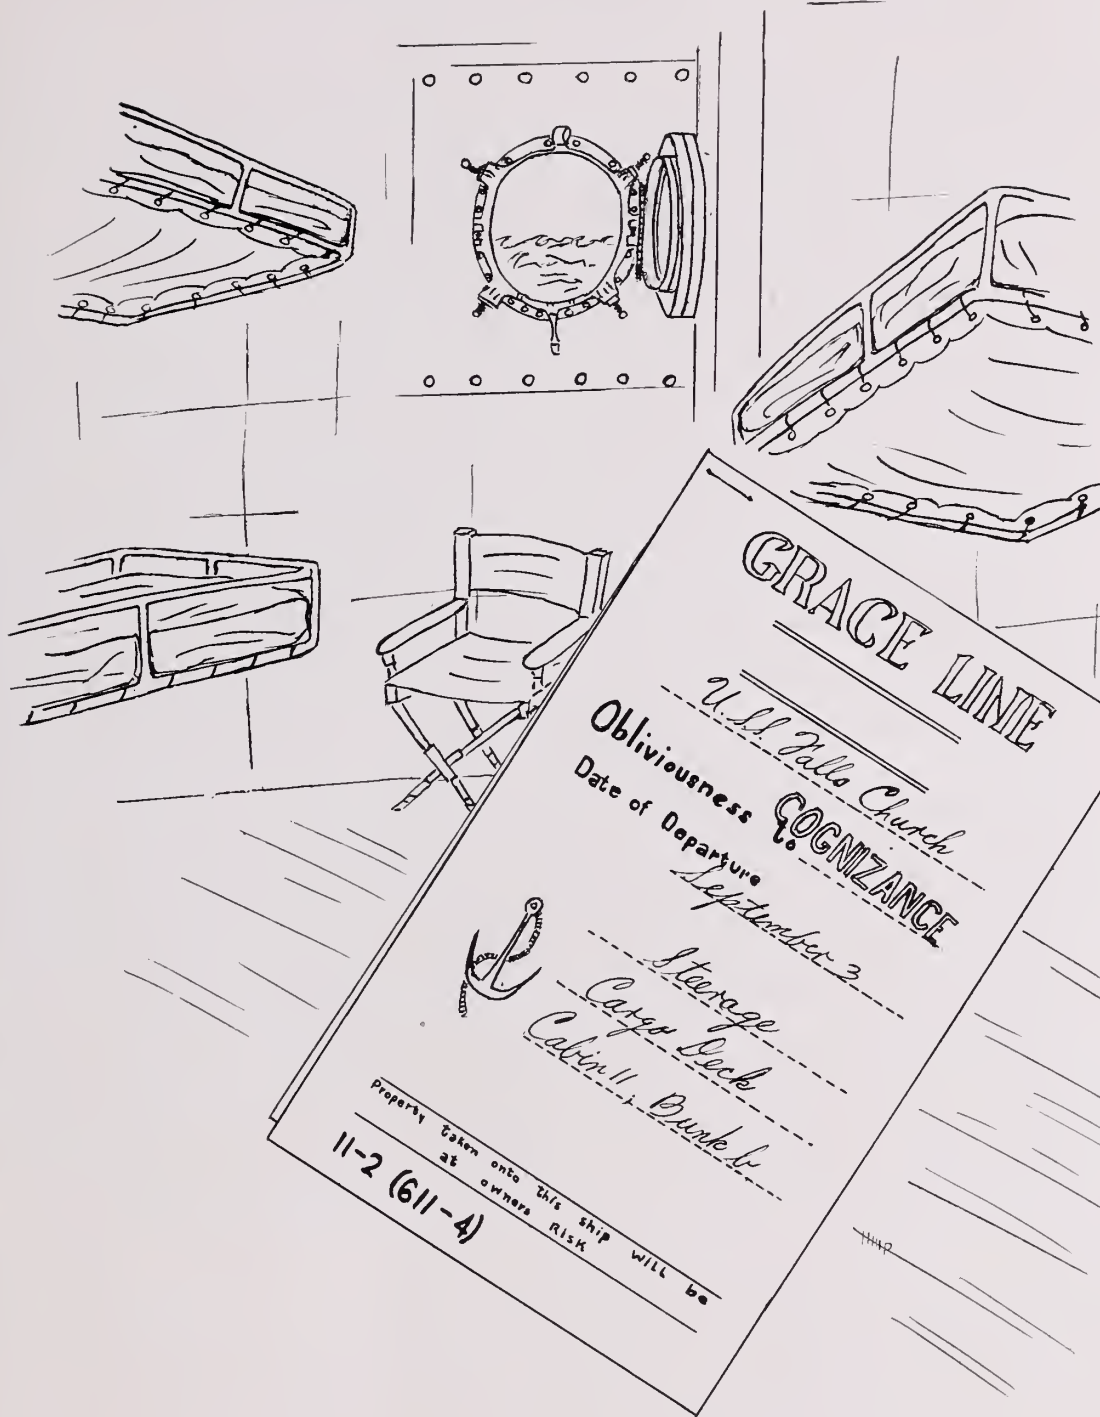 GRACE LINE
U.S.S. Falls Church
Obliviousness to COGNIZANCE
Date of Departure
September 3
Steerage
Cargo Deck
Cabin 11, Bunk b
Property taken onto this ship will be
at owners RISK
11-2 (611-4)